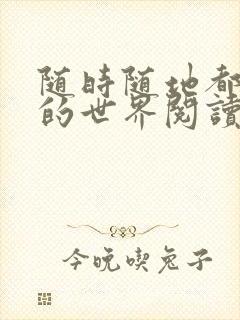 随時随地都
的世界閱讀
今晚喫兔子